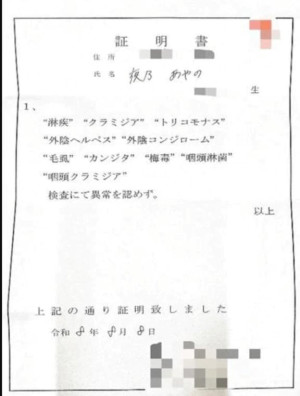 証明書
住所
氏名 夜乃 あやの
生
1、
“淋疾” “クラミジア” “トリコモナス”
“外陰ヘルペス” “外陰コンジローム”
“毛虱” “カンジタ” “梅毒” “咽頭淋菌”
“咽頭クラミジア”
検査にて異常を認めず。
以上
上記の通り証明致しました
令和 8 年 8 月 8 日